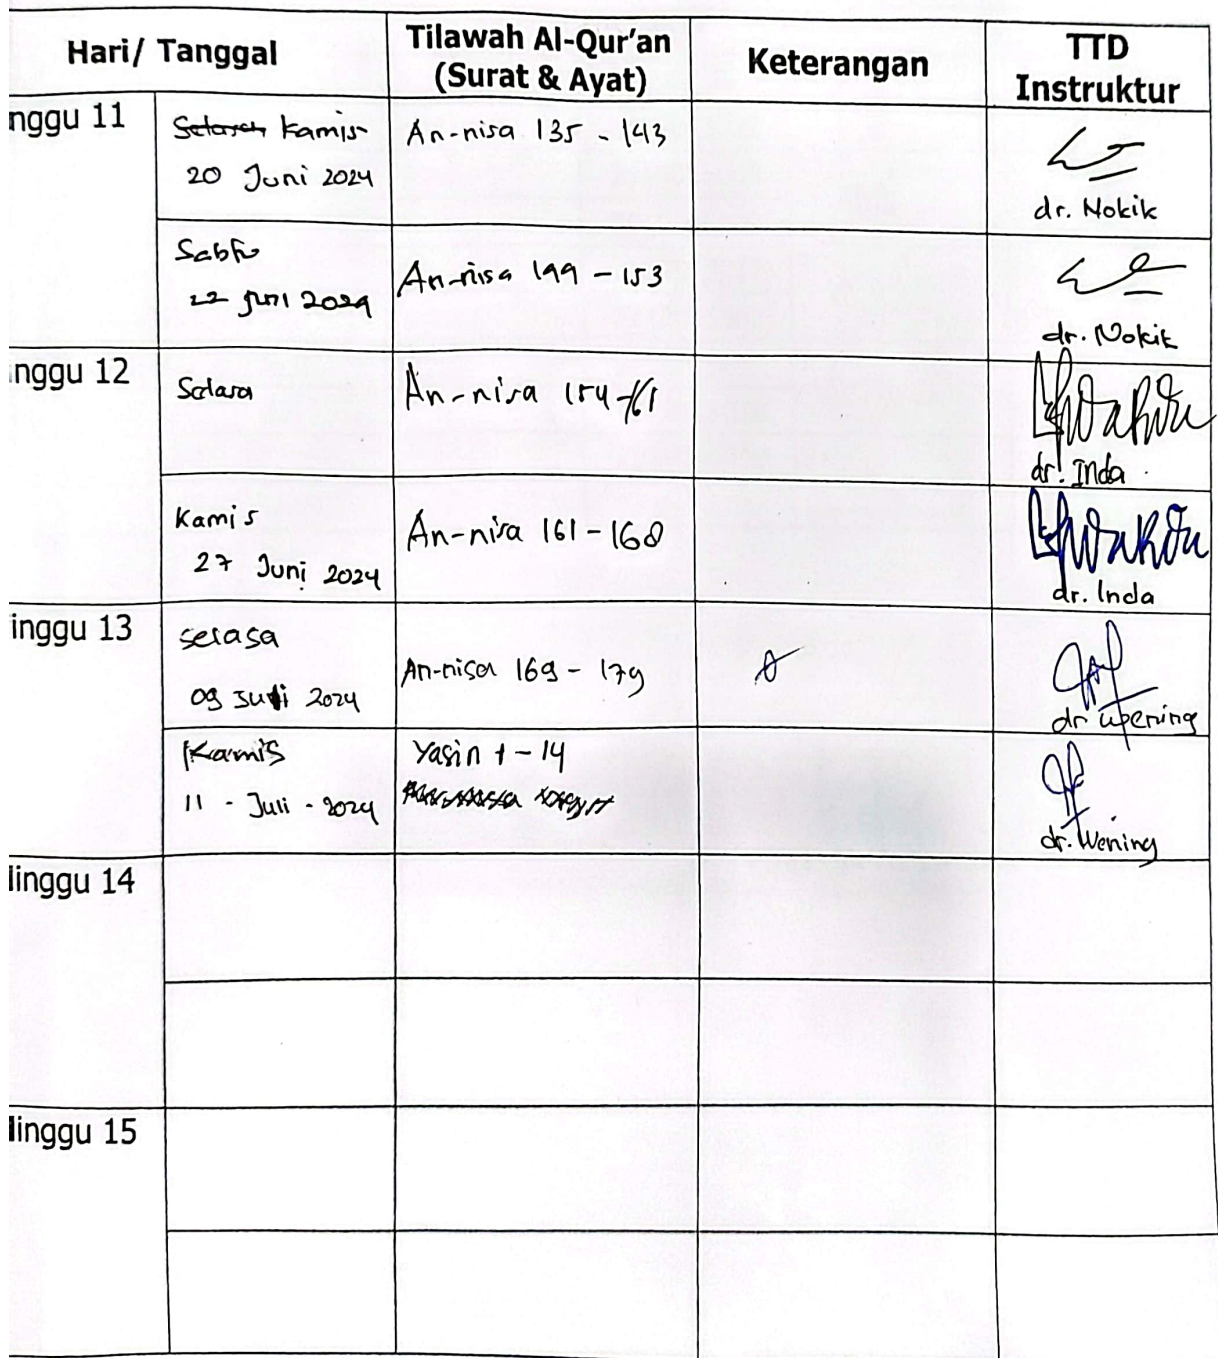 Hari/ Tanggal
Tilawah Al-Qur'an
(Surat & Ayat)
Keterangan
TTD
Instruktur
nggu 11
Kamis
20 Juni 2024
An-nisa 135 - 143
dr. Nokik
Sabtu
22 Juni 2024
An-nisa 144 - 153
dr. Nokik
nggu 12
Selasa
An-nisa 154-161
dr. Inda
Kamis
27 Juni 2024
An-nisa 161 - 168
dr. Inda
inggu 13
selasa
09 Juli 2024
An-nisa 169 - 179
dr wening
Kamis
11 - Juli - 2024
Yasin 1 - 14
dr. Wening
linggu 14
linggu 15